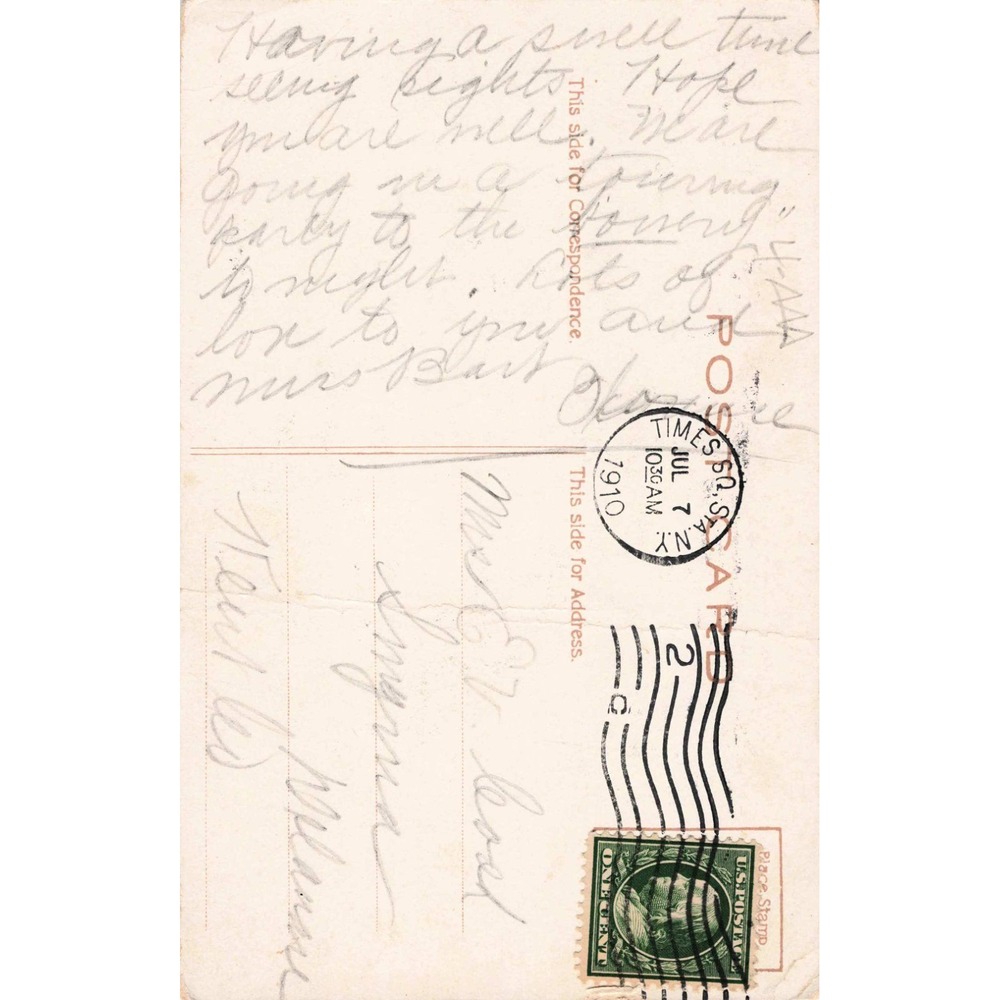 Having a swell time
seeing sights. Hope
you are well. We are
going in a touring
party to the "Bowery"
to night. Lots of
love to you and
Mrs
This side for Correspondence.
POST CARD
This side for Address.
TIMES SQ. STA. N.Y.
JUL 7
1030 AM
1910
2
C
Place Stamp
U.S. POSTAGE
ONE CENT
Smyrna
Delaware
Kent Co